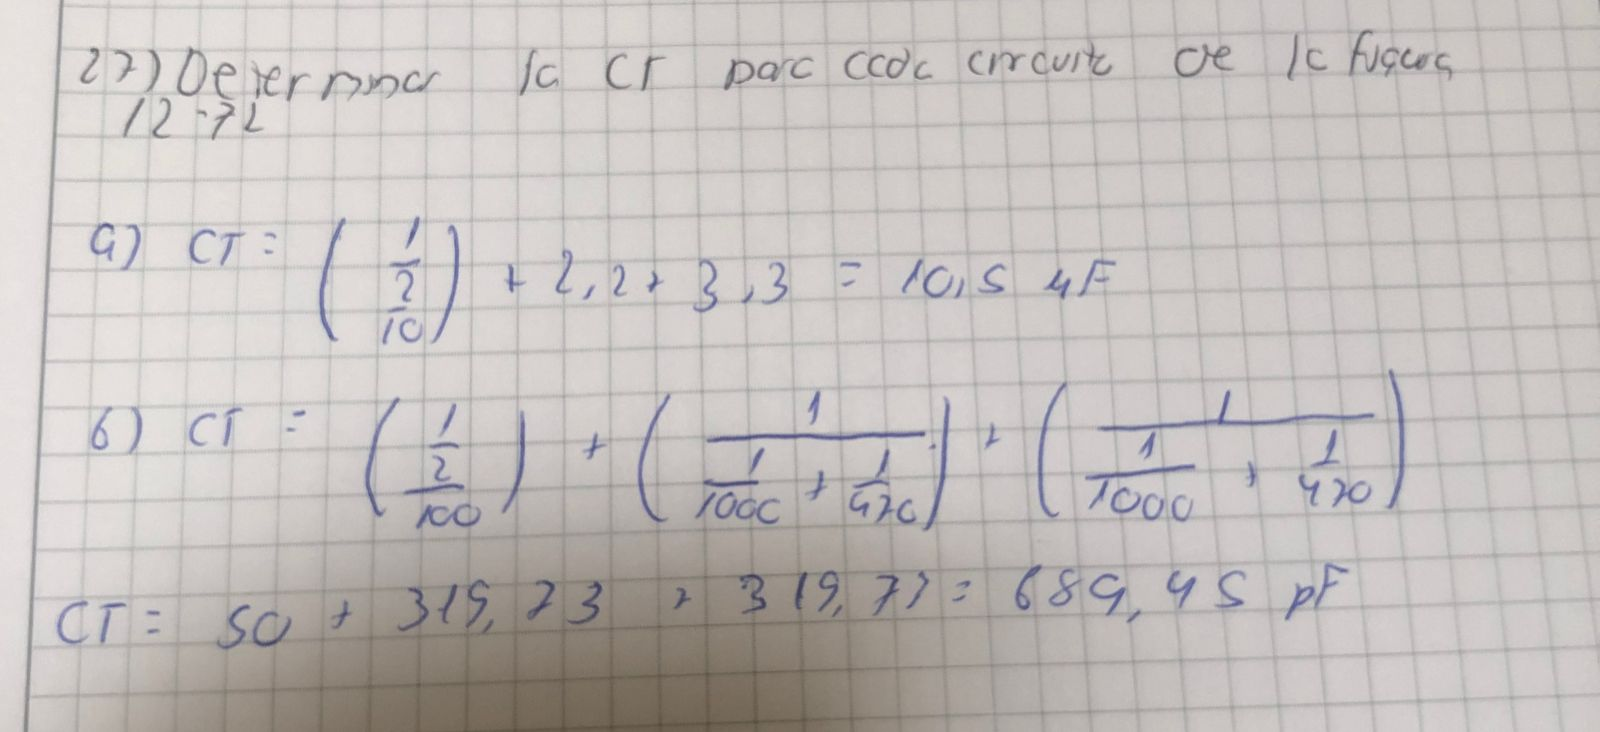 27) Determina la CT para cada circuito de la figura
12-72
a) CT = ( 1 / 2/10 ) + 2,2 + 3,3 = 10,5 µF
b) CT = ( 1 / 2/100 ) + ( 1 / 1/1000 + 1/470 ) + ( 1 / 1/1000 + 1/470 )
CT = 50 + 319,73 + 319,73 = 689,45 pF